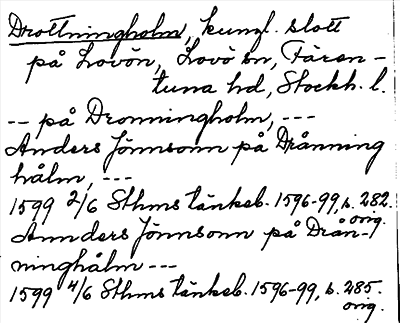 Drottningholm, kungl. slott
på Lovön, Lovö sn, Fären-
tuna hd, Stockh. l.
-- på Dromningholm, ---
Anders Jönnsonn på Drånning
hålm, ---
1599 2/6 Sthms tänkeb. 1596-99, s. 282.
orig.
Annders Jönnsonn på Drån-
ninghålm ---
1599 4/6 Sthms tänkeb. 1596-99, s. 285.
orig.